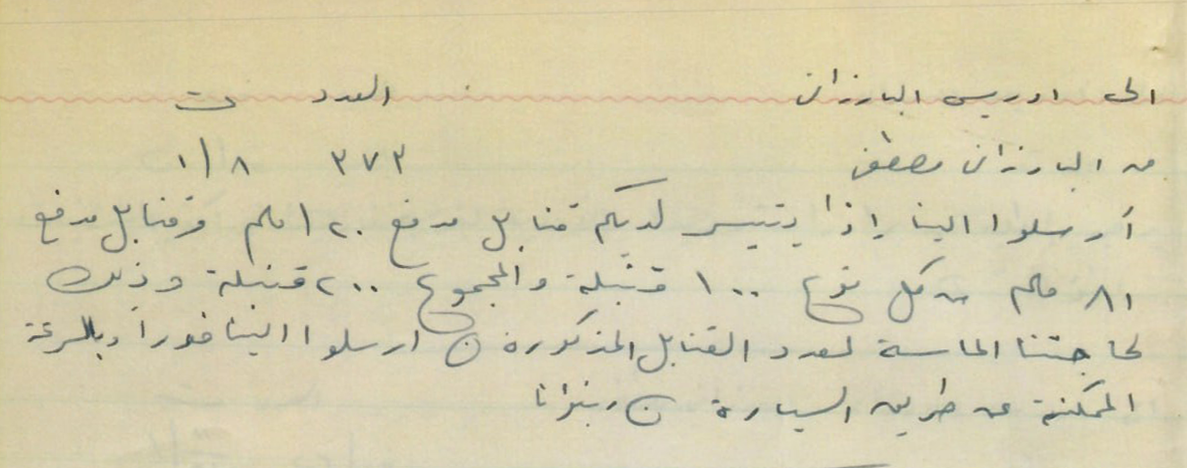 الى ادريس البارزاني العدد ت
من البارزاني مصطفى ٣٧٣ ١/٨
أرسلوا الينا إذا يتيسر لديكم قنابل مدفع ١٢٠ ملم وقنابل مدفع
٨١ ملم من كل نوع ١٠٠ قنبلة والمجموع ٢٠٠ قنبلة وذلك
لحاجتنا الماسة لعدد القنابل المذكورة ن ارسلوا الينا فوراً وبالسرعة
الممكنة عن طريق السيارة ن